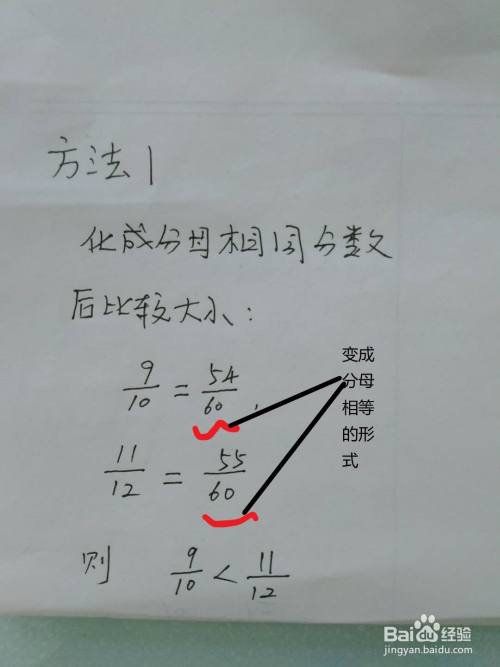 方法1
化成分母相同分数
后比较大小：
9/10 = 54/60，
11/12 = 55/60
则 9/10 < 11/12
变成
分母
相等
的形
式
Baidu经验
jingyan.baidu.com